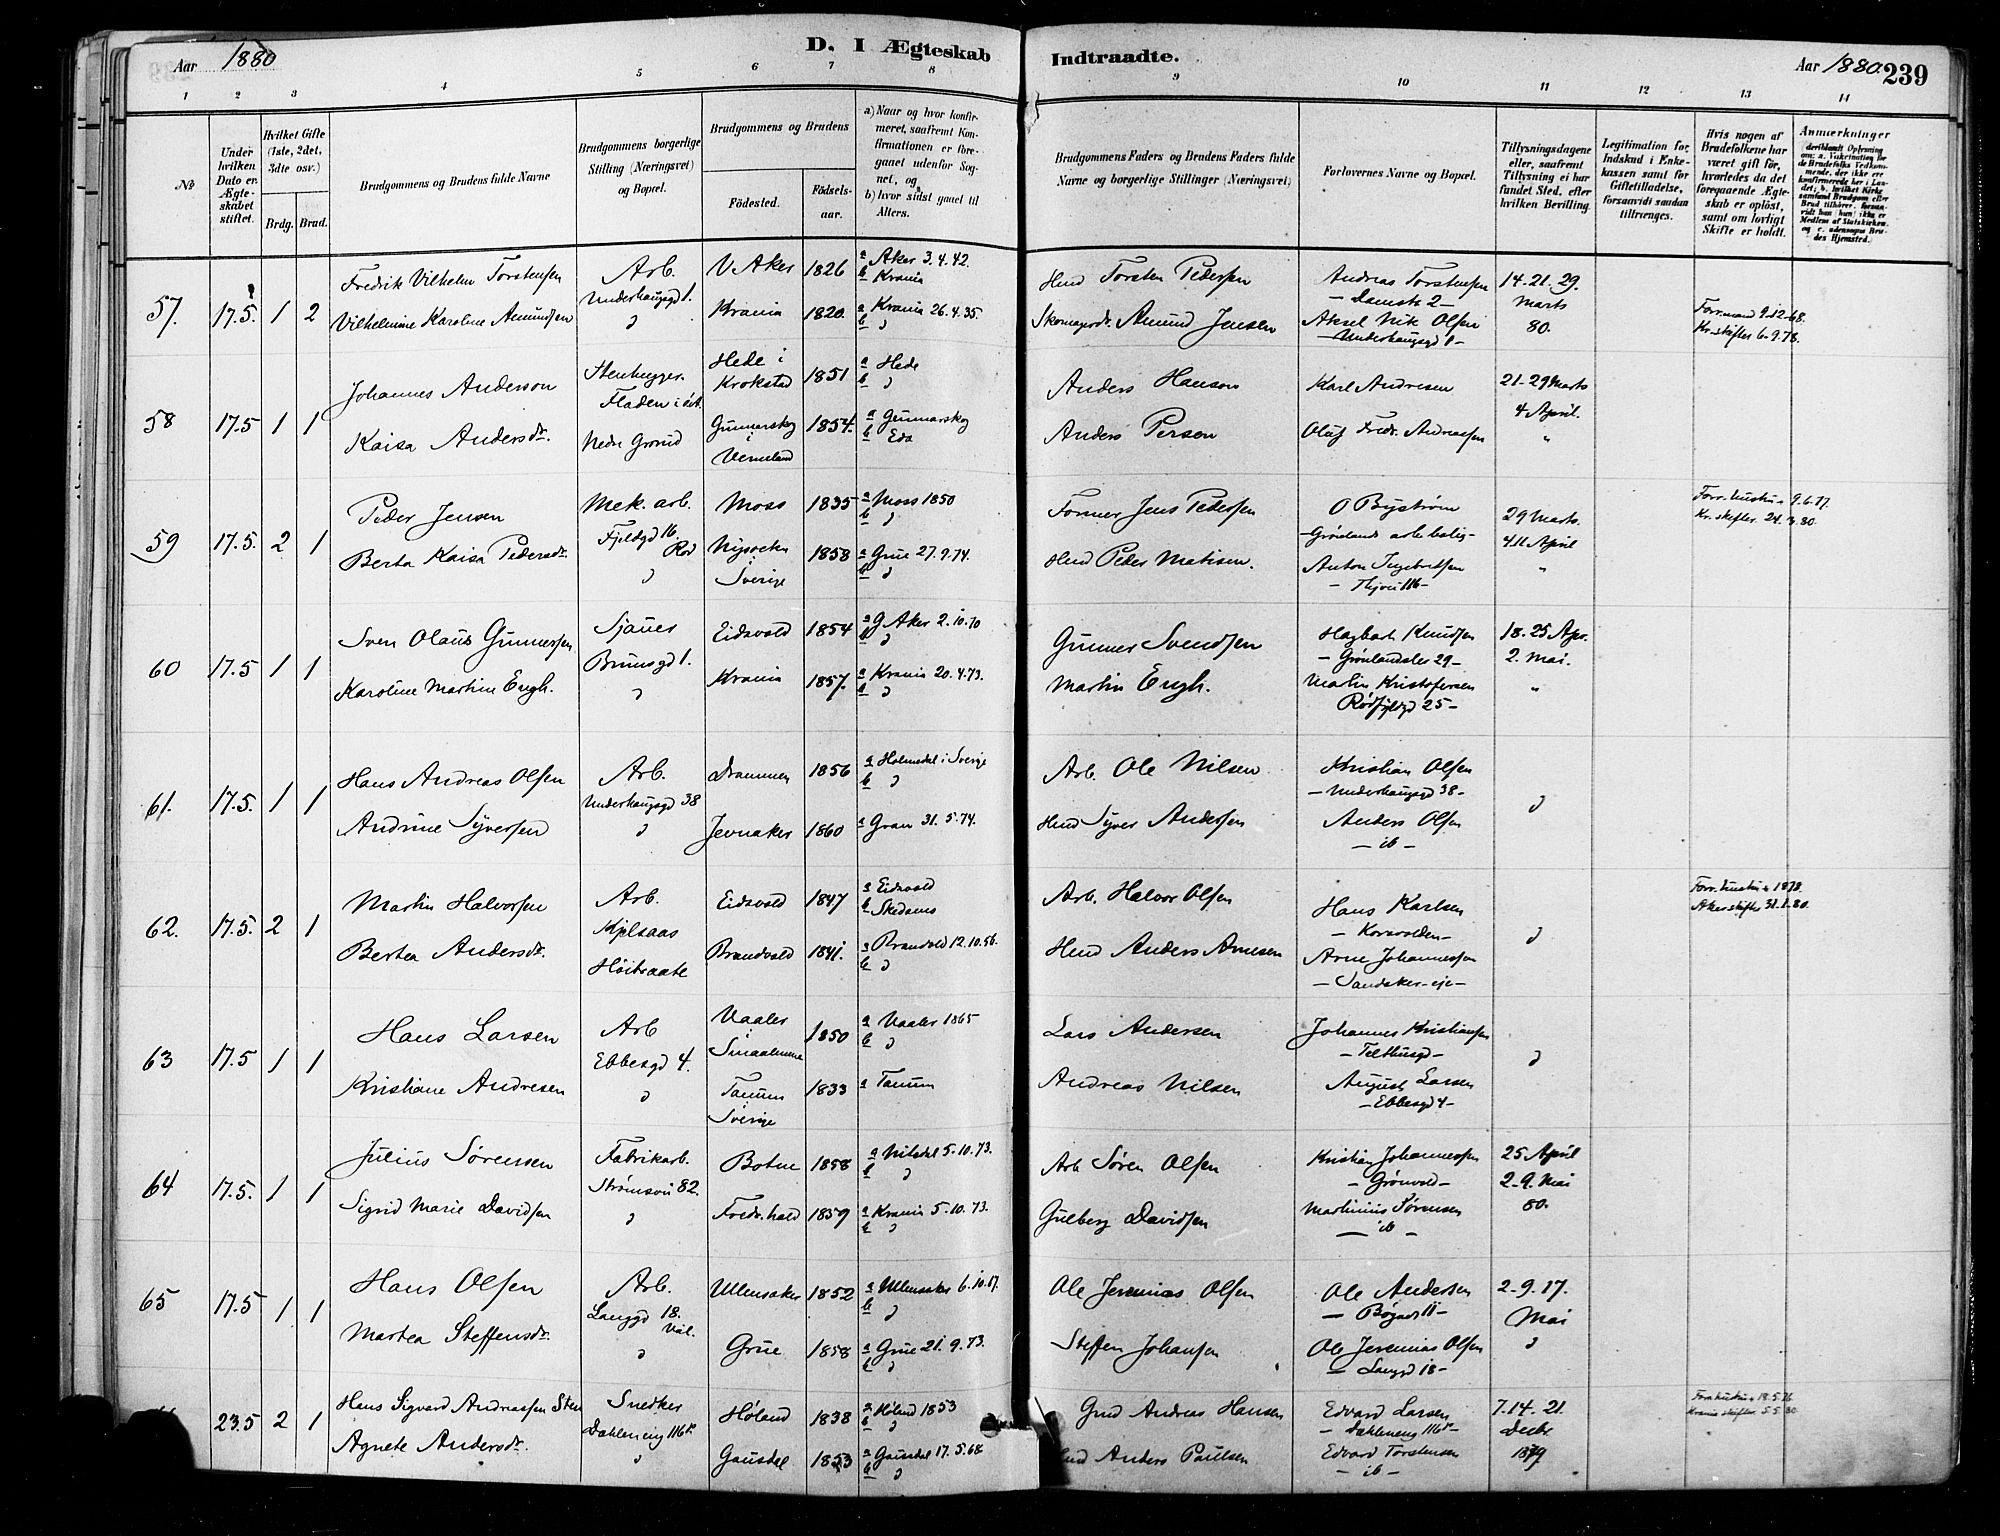 Aar 1880
D. I Ægteskab
Indtraadte.
Aar 1880. 239
1 2 3 4 5 6 7 8 9 10 11 12 13 14
No
Under hvilken Dato er Ægteskabet stiftet.
Hvilket Gifte (1ste, 2det, 3dte osv.)
Brdg. Brud.
Brudgommens og Brudens fulde Navne
Brudgommens borgerlige Stilling (Næringsvei) og Bopæl.
Brudgommens og Brudens
Fødested.
Fødselsaar.
a) Naar og hvor konfirmeret, saafremt Konfirmationen er foregaaet udenfor Sognet, og
b) hvor sidst gaaet til Alters.
Brudgommens Faders og Brudens Faders fulde Navne og borgerlige Stillinger (Næringsvei)
Forlovernes Navne og Bopæl.
Tillysningsdagene eller, saafremt Tillysning ei har fundet Sted, efter hvilken Bevilling.
Legitimation for Indskud i Enkekassen samt for Giftetilladelse, forsaavidt saadan tiltrænges.
Hvis nogen af Brudefolkene har været gift før, hvorledes da det foregaaende Ægteskab er opløst, samt om lovligt Skifte er holdt.
Anmærkninger
57. 17.5. 1 2
Fredrik Vilhelm Torstensen Arb. V Aker 1826 a Aker 3.4.42. b Krania
Underhaugsgd 1.
Vilhelmine Karoline Amundsen Krania 1820. a Krania 26.4.35.
Hmd Torsten Pedersen Andreas Torstensen 14.21.29. Marts 80.
Skomagerdr. Amund Jensen Aksel Nik Olsen
Underhaugsgd 1
Forr. mand 9.12.68.
Kr. skifter 6.9.78.
58 17.5 1 1
Johannes Anderson Stenhugger Hede i Krokstad 1851 a Hede
Kaisa Andersdr. Nedr Grønd Gunnarskog i Vermland 1854. a Gunnarskog b Eda
Anders Hanson Karl Andresen 21-29 Marts 4 April.
Anders Person Oluf Fredr. Andreassen
59 17.5. 2 1
Peder Jensen Mek. arb. Moss 1835 a Moss 1850
Fjeldgd 16.
Berta Kaisa Pedersdr. Sverige 1858 a Grue 27.9.74.
Former Jens Pedersen O Byström 29 Marts
Grønlands arb. bolig 4.11 April
Hmd Peder Matisen. Anton Ingebretsen
Forr. hustru + 9.6.77.
Kr. skifter 24.3.80.
60 17.5 1 1
Sven Olaus Gunnersen Sjauer Eidsvold 1854 a G Aker 2.10.70
Brunsgd 1.
Karoline Martine Engh. Krania 1857. a Krania 20.4.73.
Gunner Svendsen Hagbart Knudsen 18.25 Apr. 2. Mai.
Grønlandsler 29
Martin Engh. Martin Kristofersen
Rødfyldgd 25
61. 17.5. 1 1
Hans Andreas Olsen Arb. Drammen 1856 a Holmedal i Sverige
Underhaugsgd 38
Andrine Syversen Jevnaker 1860 a Gran 31.5.74.
Arb. Ole Nilsen Kristian Olsen
Underhaugsgd 38
Hmd Syver Andersen Anders Olsen
ib
62. 17.5. 2 1
Martin Halvorsen Arb. Eidsvold 1847 a Eidsvold b Skedsmo
Bertea Andersdr. Brandvold 1841. a Brandvold 12.10.56.
Arb. Halvor Olsen Hans Karlsen
Korsvolden
Hmd Anders Arnesen Arne Johannessen
Sandaker-eje
Forr. hustru + 1878.
Aker skifter 31.1.80.
63 17.5 1 1
Hans Larsen Arb Vaaler Smaalenene 1850 a Vaaler 1865
Ebbesgd 4.
Kristiane Andresen Tanum Sverige 1833 a Tanum
Lars Andersen Johannes Kristiansen
Telthusgd
Andreas Nilsen August Larsen
Ebbesgd 4
64 17.5. 1 1
Julius Sørensen Fabrikarb. Botne 1858 a Nitedal 5.10.73.
Strømsvei 82.
Sigrid Marie Davidsen Fredr.hald 1859 a Krania 5.10.73.
Arb Søren Olsen Kristian Johannessen 25 April 2-9. Mai 80.
Grønvold
Gulberg Davidsen Martinius Sørensen
ib
65 17.5 1 1
Hans Olsen Arb. Ullensaker 1852 a Ullensaker 6.10.67.
Langgd 18. Vaal.
Martea Steffensdr. Grue 1858 a Grue 21.9.73.
Ole Jeremias Olsen Ole Andersen 2-9.17. Mai
Bøgadt 11
Steffen Johansen Ole Jeremias Olsen
Langgd 18
23.5 2 1
Hans Sigvard Andreassen Sten Snedker Høland 1838 a Høland 1853
Dahleneng 116b.
Agnete Andersdr. Gausdal 1853 a Gausdal 17.5.68
Gmd Andreas Hansen Edvard Larsen 7.14.21. Decbr 1879
Dahleneng 116b
Hmd Anders Paulsen Edvard Torstensen
ib
Forr. hustru + 18.5.76
Krania skifter 5.5.80.